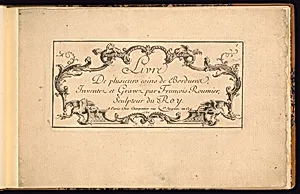 Livre
De plusieurs coins de Bordures,
Inventez et Gravez par François Roumier,
Sculpteur du Roy.
A Paris Chez